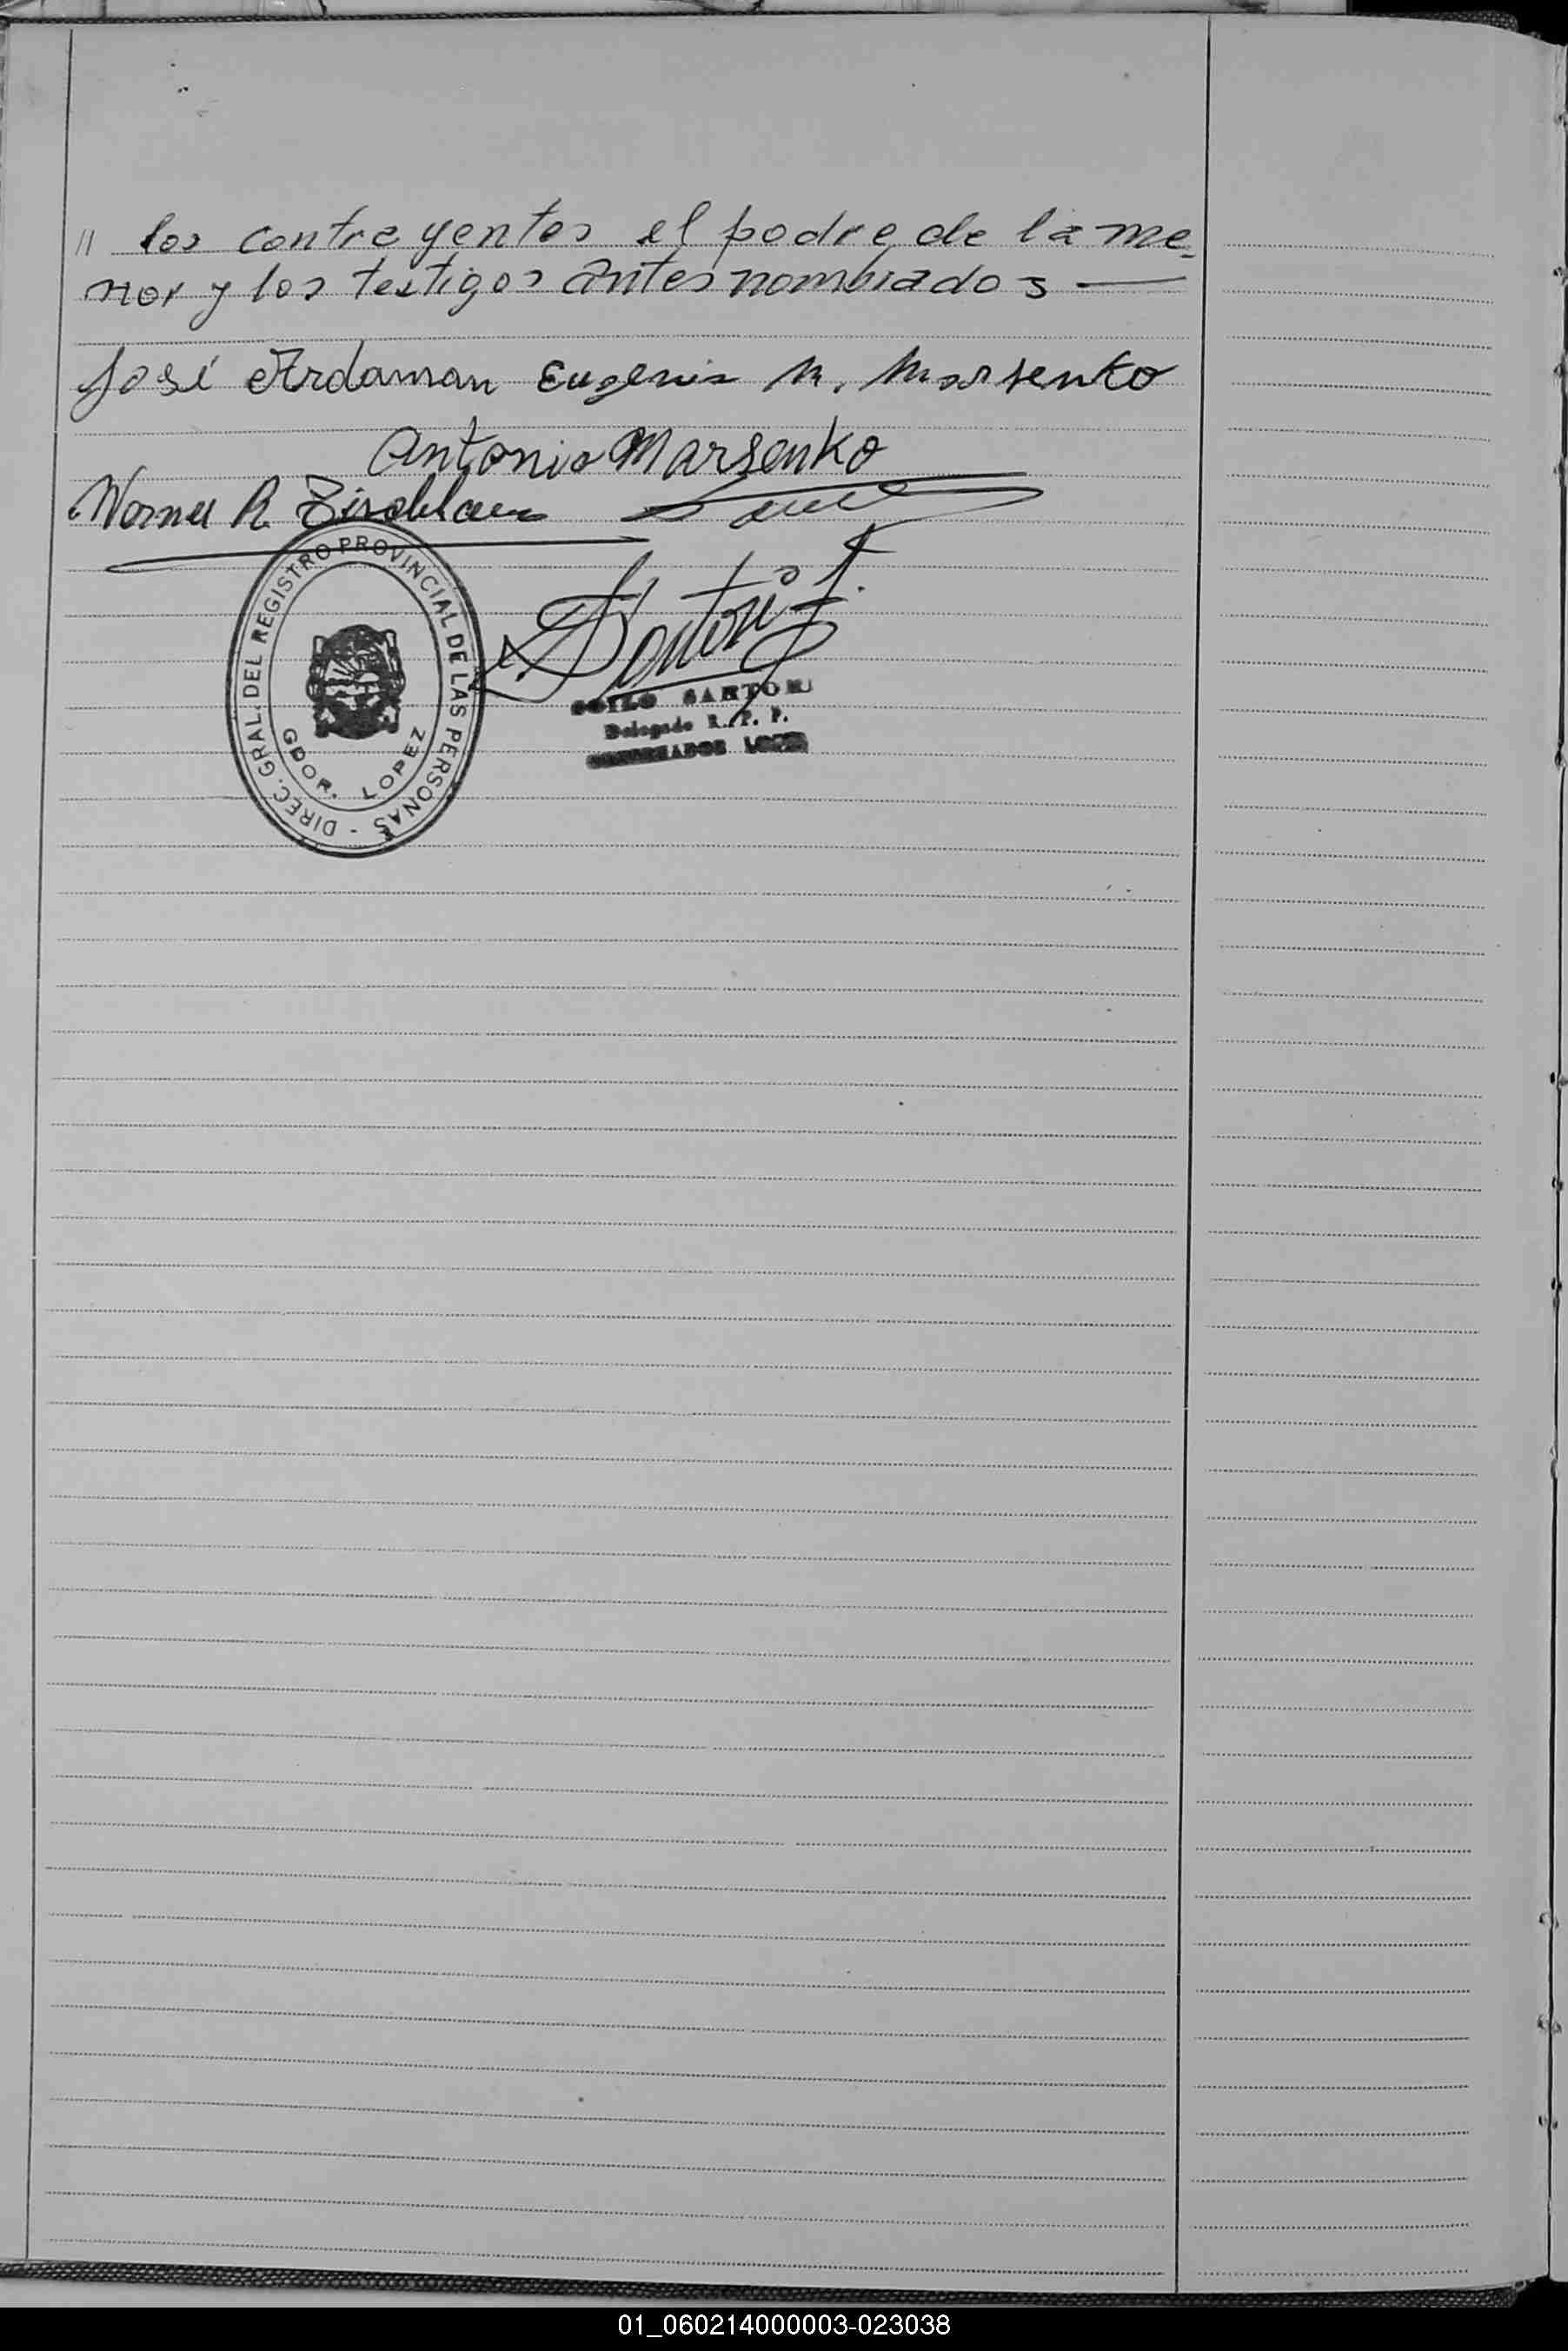 // los contrayentes el padre de la me-
nor y los testigos antes nombrados —
José Ardaman Eugenia M. Marsenko
Antonio Marsenko
Werner R.
DIREC. GRAL. DEL REGISTRO PROVINCIAL DE LAS PERSONAS -
GDOR. LOPEZ
Sartori
SARTORI
Delegado R. P. P.
GOBERNADOR LOPEZ
01_060214000003-023038